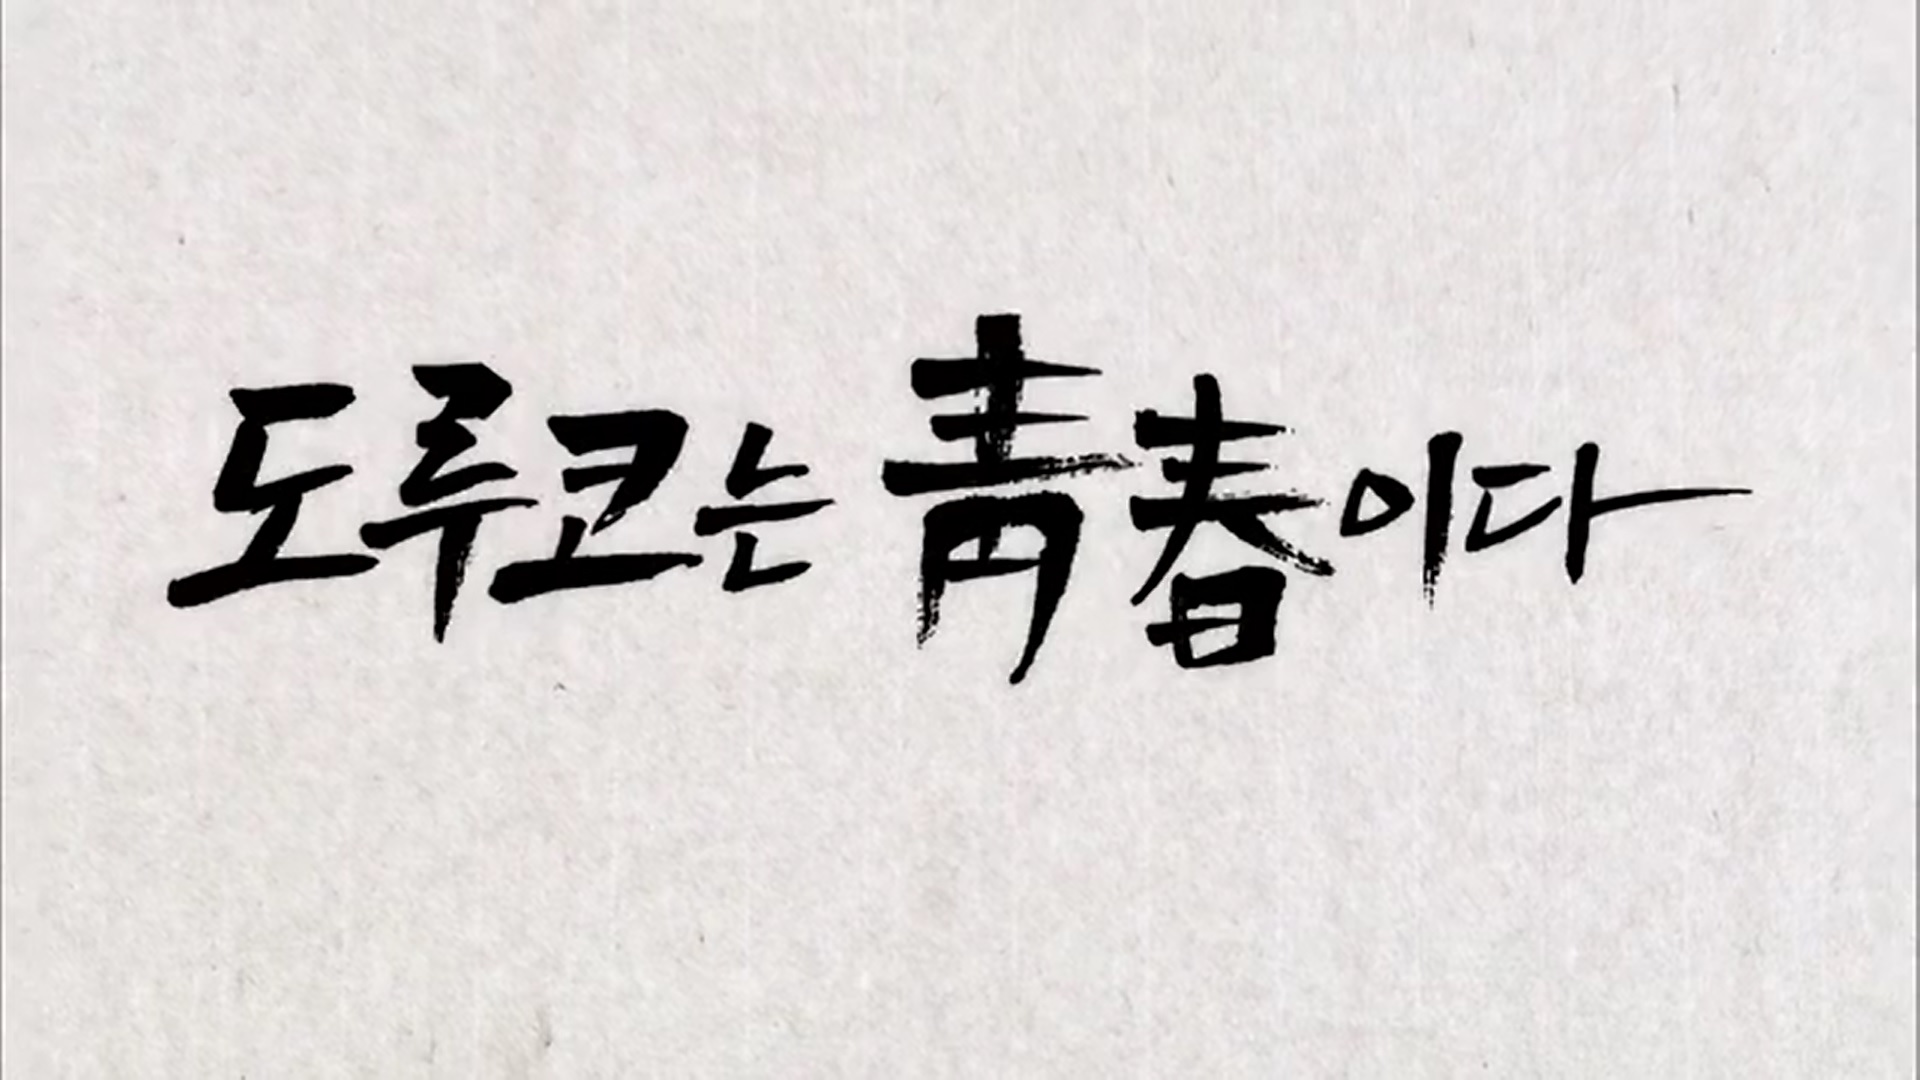 도루코는 靑春이다